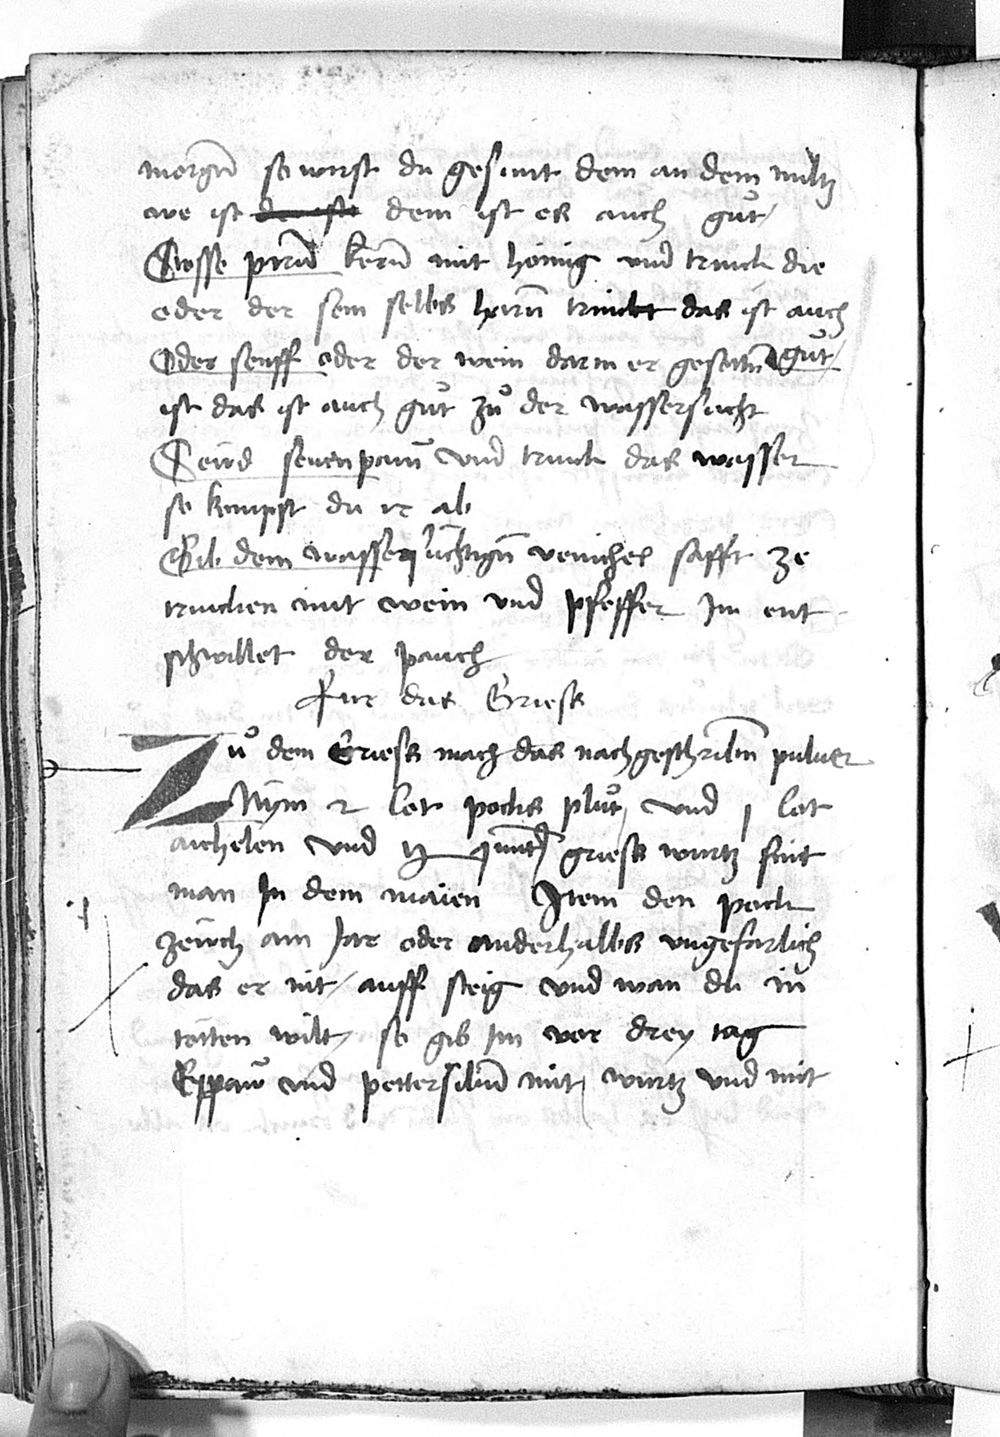 morgn̄ so wirst du gesunt dem an dem miltz
we ist dem ist es auch gůt /
Stosse kern̄ mit honig vnd trinck die
oder der sein selbs harn̄ trinckt das ist auch
Oder senff oder der wein darin er gesotn̄ gůt /
ist das ist auch gůt zů der wassersucht
Seüd seuenpaum̄ vnd trinck das wasser
so kumpst du ir ab
Gib dem wassersüchtign̄ venichel safft ze
trincken mit wein vnd pfeffer Im ent
schwillet der pauch
Fur das Griess
Zů dem Griess mach das nachgeschribn̄ puluer
Nym 2 lot pocks plůt / vnd j lot
aichelen vnd ij quint griess wurtz fint
man In dem maien Item den pock
zeüch ain Jar oder anderhalbs vngefarlich
das er nit / auff steig vnd wan du in̄
töiten wilt / so gib Im vor drey tag
Eppaw vnd pettersilin̄ mit / wurtz vnd mit